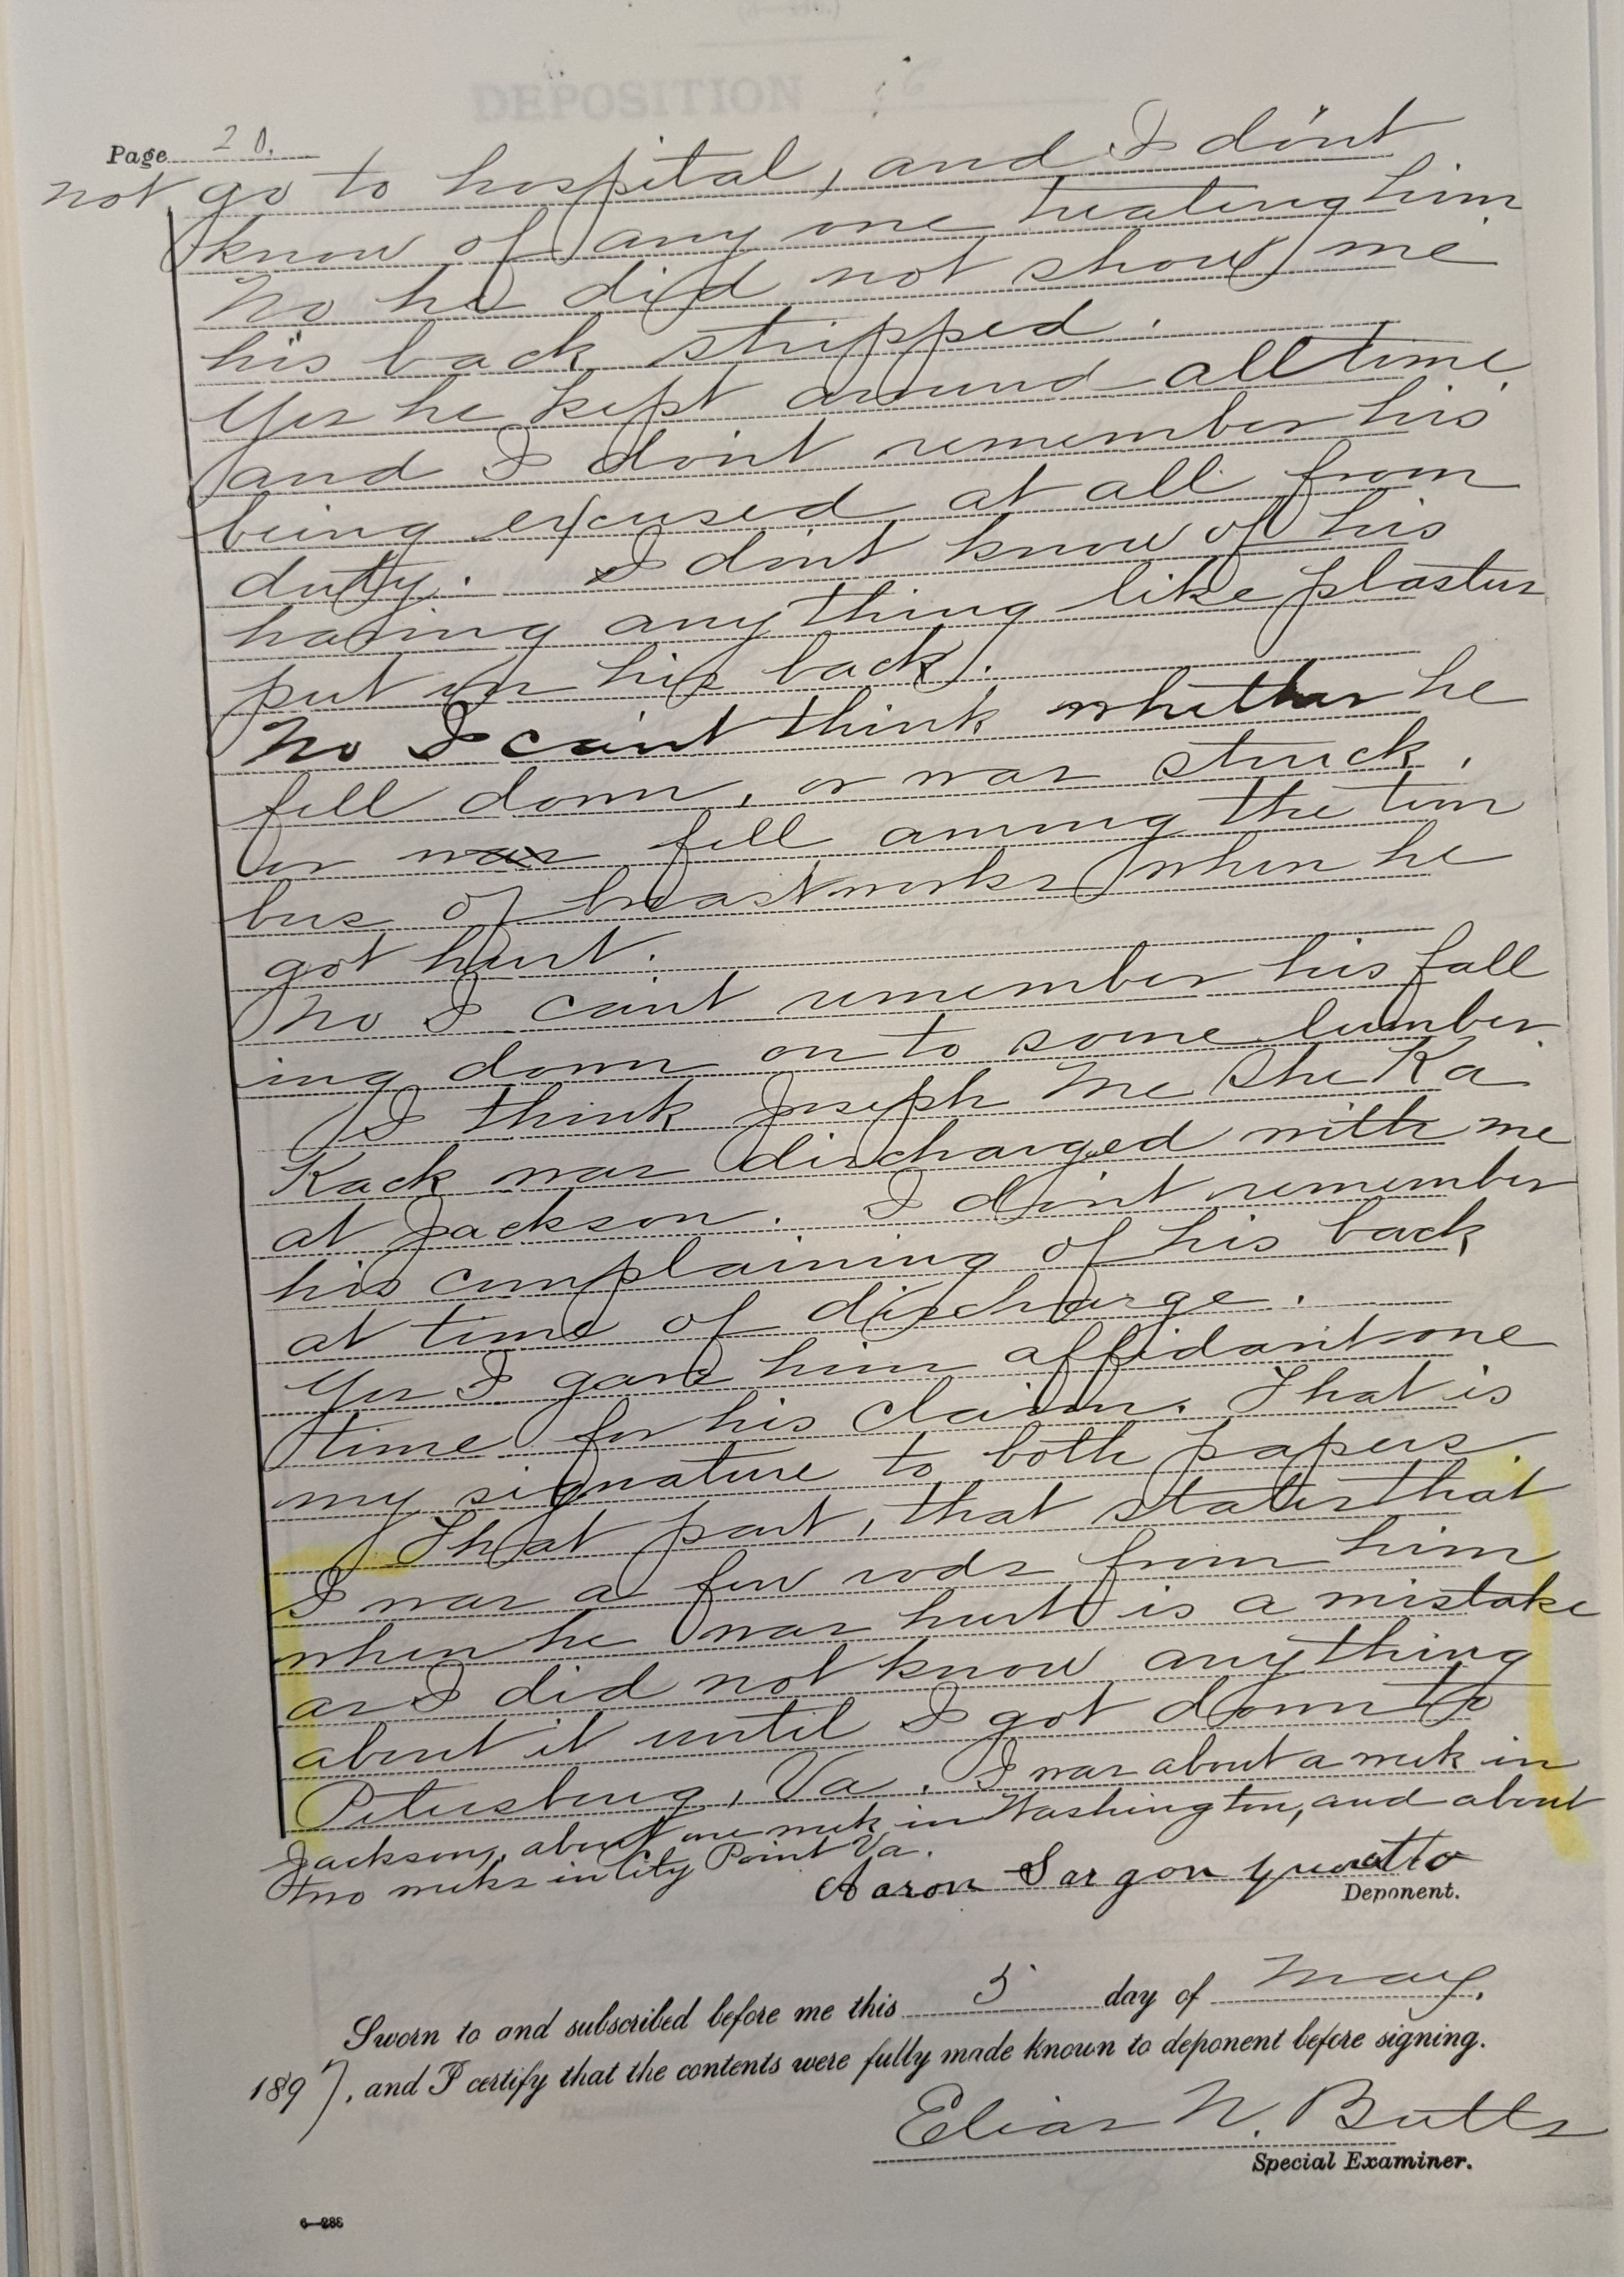 DEPOSITION
Page 20.
not go to hospital, and I don't
know of any one treating him
No he did not show me
his back stripped.
Yes he kept around all time
and I don't remember his
being excused at all from
duty. I don't know of his
having anything like plaster
put on his back.
No I can't think whether he
fell down, or was struck,
or was fell among the tim
bers of breastworks when he
got hurt.
No I can't remember his fall
ing down on to some lumber
I think Joseph Me She Ka
Kack was discharged with me
at Jackson. I don't remember
his complaining of his back
at time of discharge.
Yes I gave him affidavit one
time for his claim. That is
my signature to both papers.
That part, that states that
I was a few rods from him
when he was hurt is a mistake
as I did not know anything
about it until I got down to
Petersburg, Va. I was about a week in
Jackson, about one week in Washington, and about
two weeks in City Point Va.
Aaron Sargon
Deponent.
Sworn to and subscribed before me this 5 day of May,
1897, and I certify that the contents were fully made known to deponent before signing.
Elias N. Butts
Special Examiner.